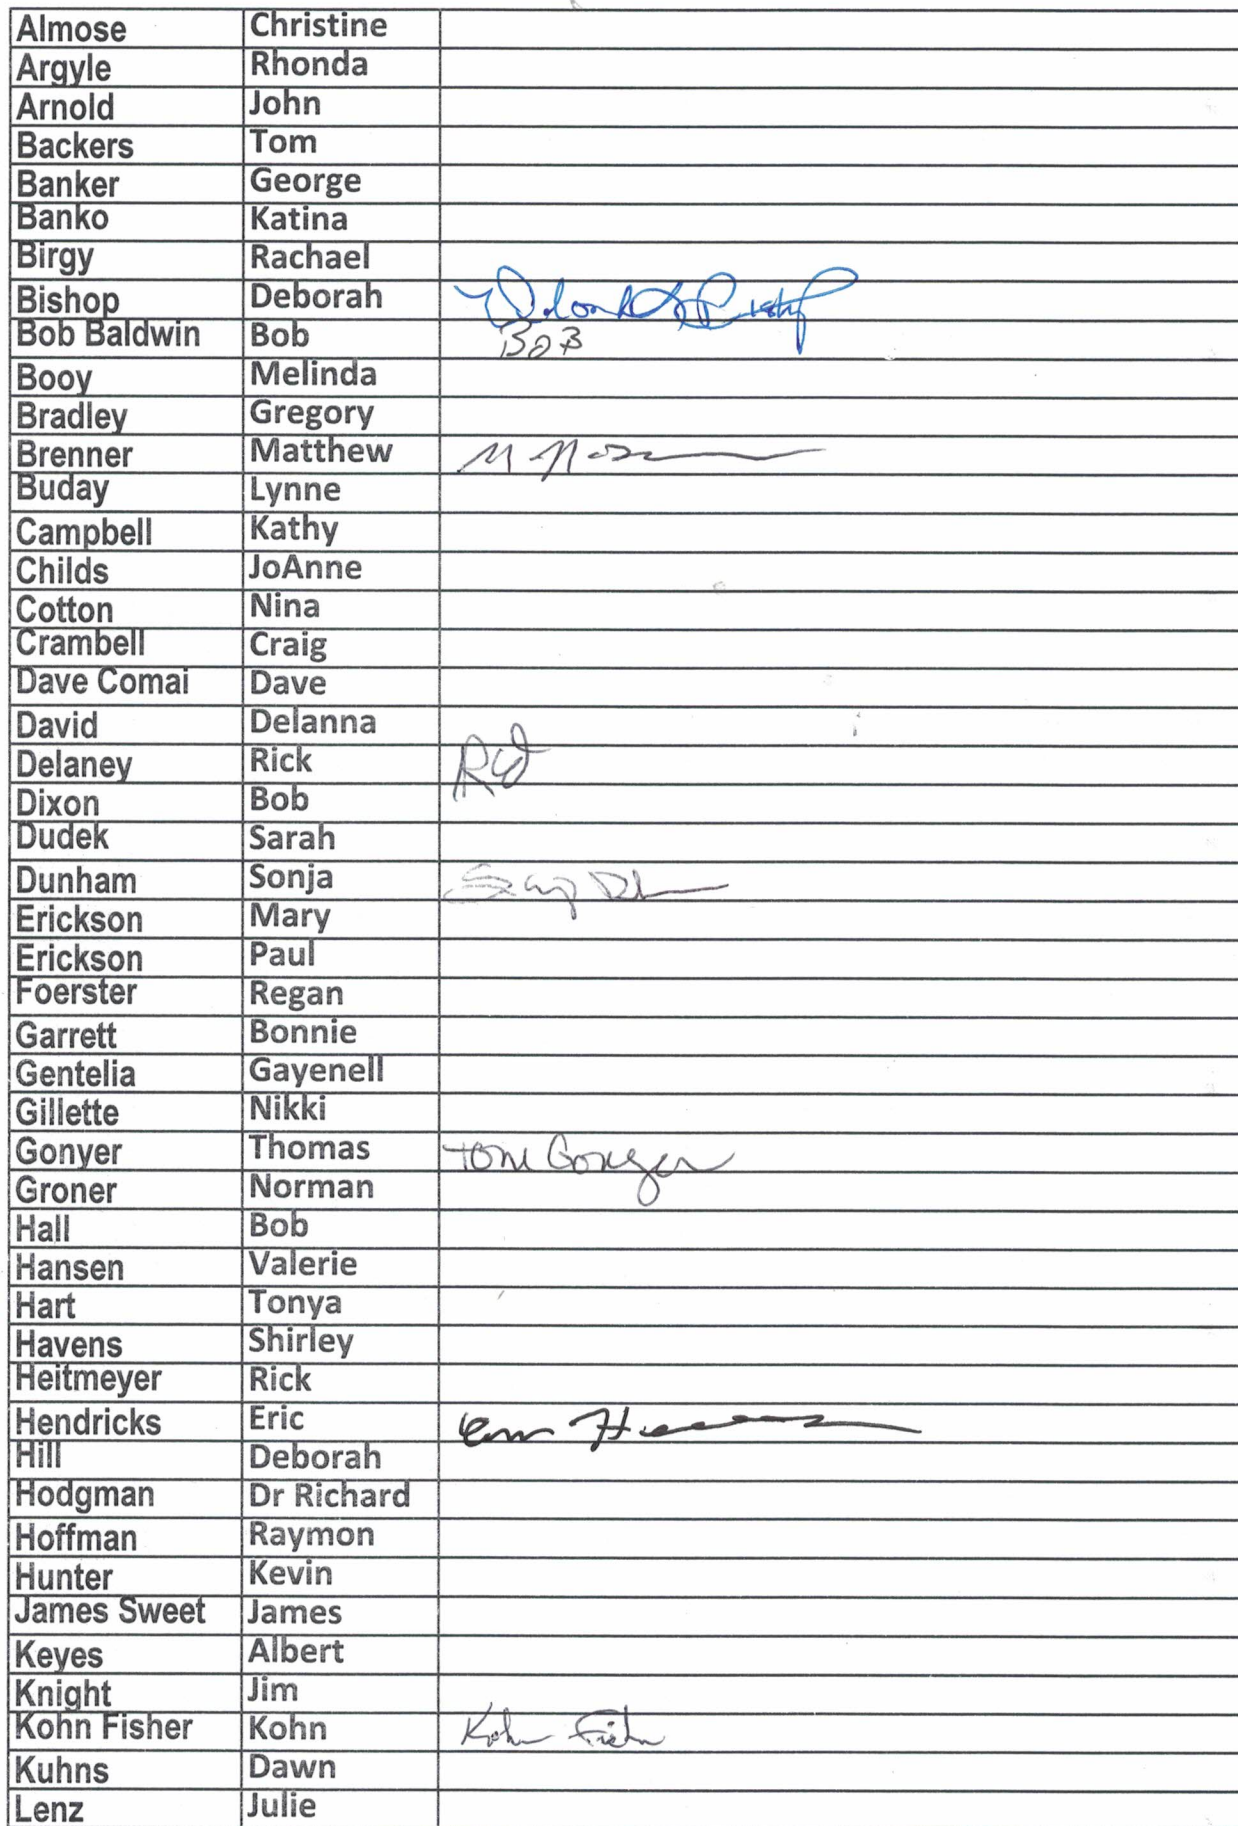 Almose Christine
Argyle Rhonda
Arnold John
Backers Tom
Banker George
Banko Katina
Birgy Rachael
Bishop Deborah
Bob Baldwin Bob BOB
Booy Melinda
Bradley Gregory
Brenner Matthew
Buday Lynne
Campbell Kathy
Childs JoAnne
Cotton Nina
Crambell Craig
Dave Comai Dave
David Delanna
Delaney Rick
Dixon Bob
Dudek Sarah
Dunham Sonja
Erickson Mary
Erickson Paul
Foerster Regan
Garrett Bonnie
Gentelia Gayenell
Gillette Nikki
Gonyer Thomas Tom Gonyer
Groner Norman
Hall Bob
Hansen Valerie
Hart Tonya
Havens Shirley
Heitmeyer Rick
Hendricks Eric
Hill Deborah
Hodgman Dr Richard
Hoffman Raymon
Hunter Kevin
James Sweet James
Keyes Albert
Knight Jim
Kohn Fisher Kohn Kohn Fisher
Kuhns Dawn
Lenz Julie